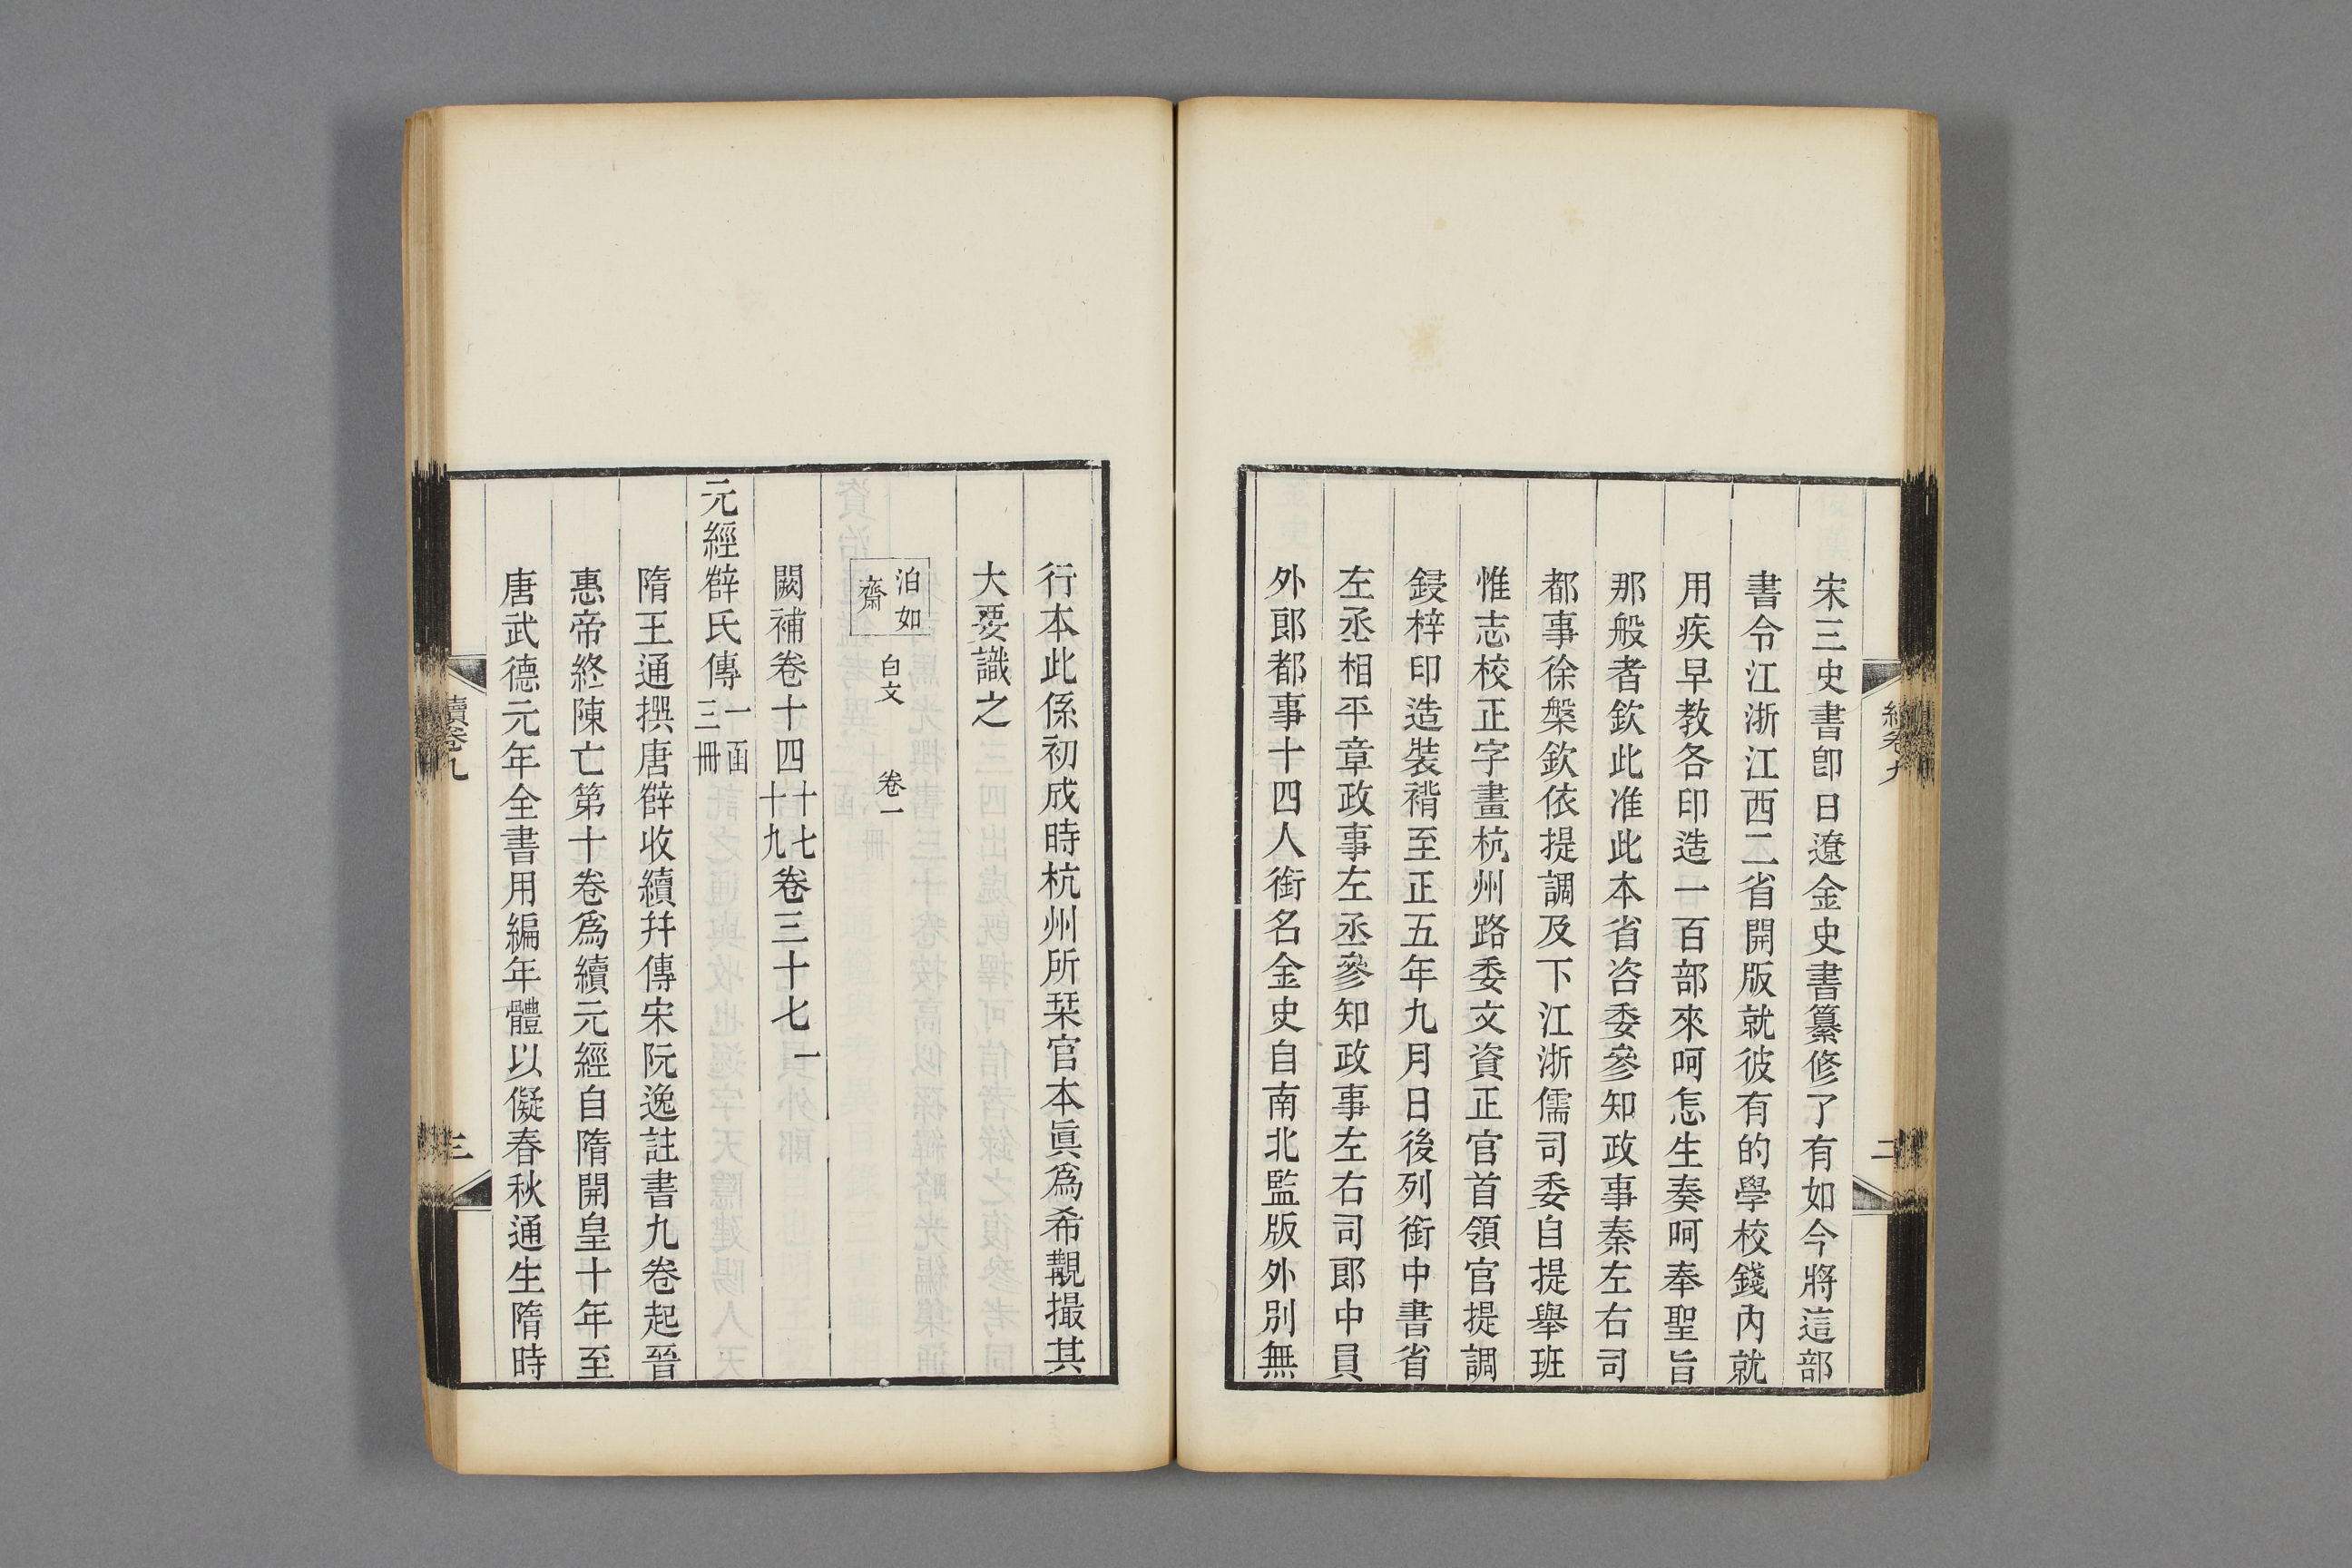 宋三史書卽日遼金史書纂修了有如今將這部
書令江浙江西二省開版就彼有的學校錢內就
用疾早教各印造一百部來呵怎生奏呵奉聖旨
那般者欽此准此本省咨委參知政事秦左右司
都事徐槃欽依提調及下江浙儒司委自提舉班
惟志校正字畫杭州路委文資正官首領官提調
鋟梓印造裝褙至正五年九月日後列銜中書省
左丞相平章政事左丞參知政事左右司郎中員
外郎都事十四人銜名金史自南北監版外別無
續卷九
二
行本此係初成時杭州所栞官本眞爲希覯撮其
大要識之
泊如
齋
白文
卷一
闕補卷十四十七
十九卷三十七一
元經薛氏傳一函
三冊
隋王通撰唐薛收續幷傳宋阮逸註書九卷起晉
惠帝終陳亡第十卷爲續元經自隋開皇十年至
唐武德元年全書用編年體以儗春秋通生隋時
續卷九
三